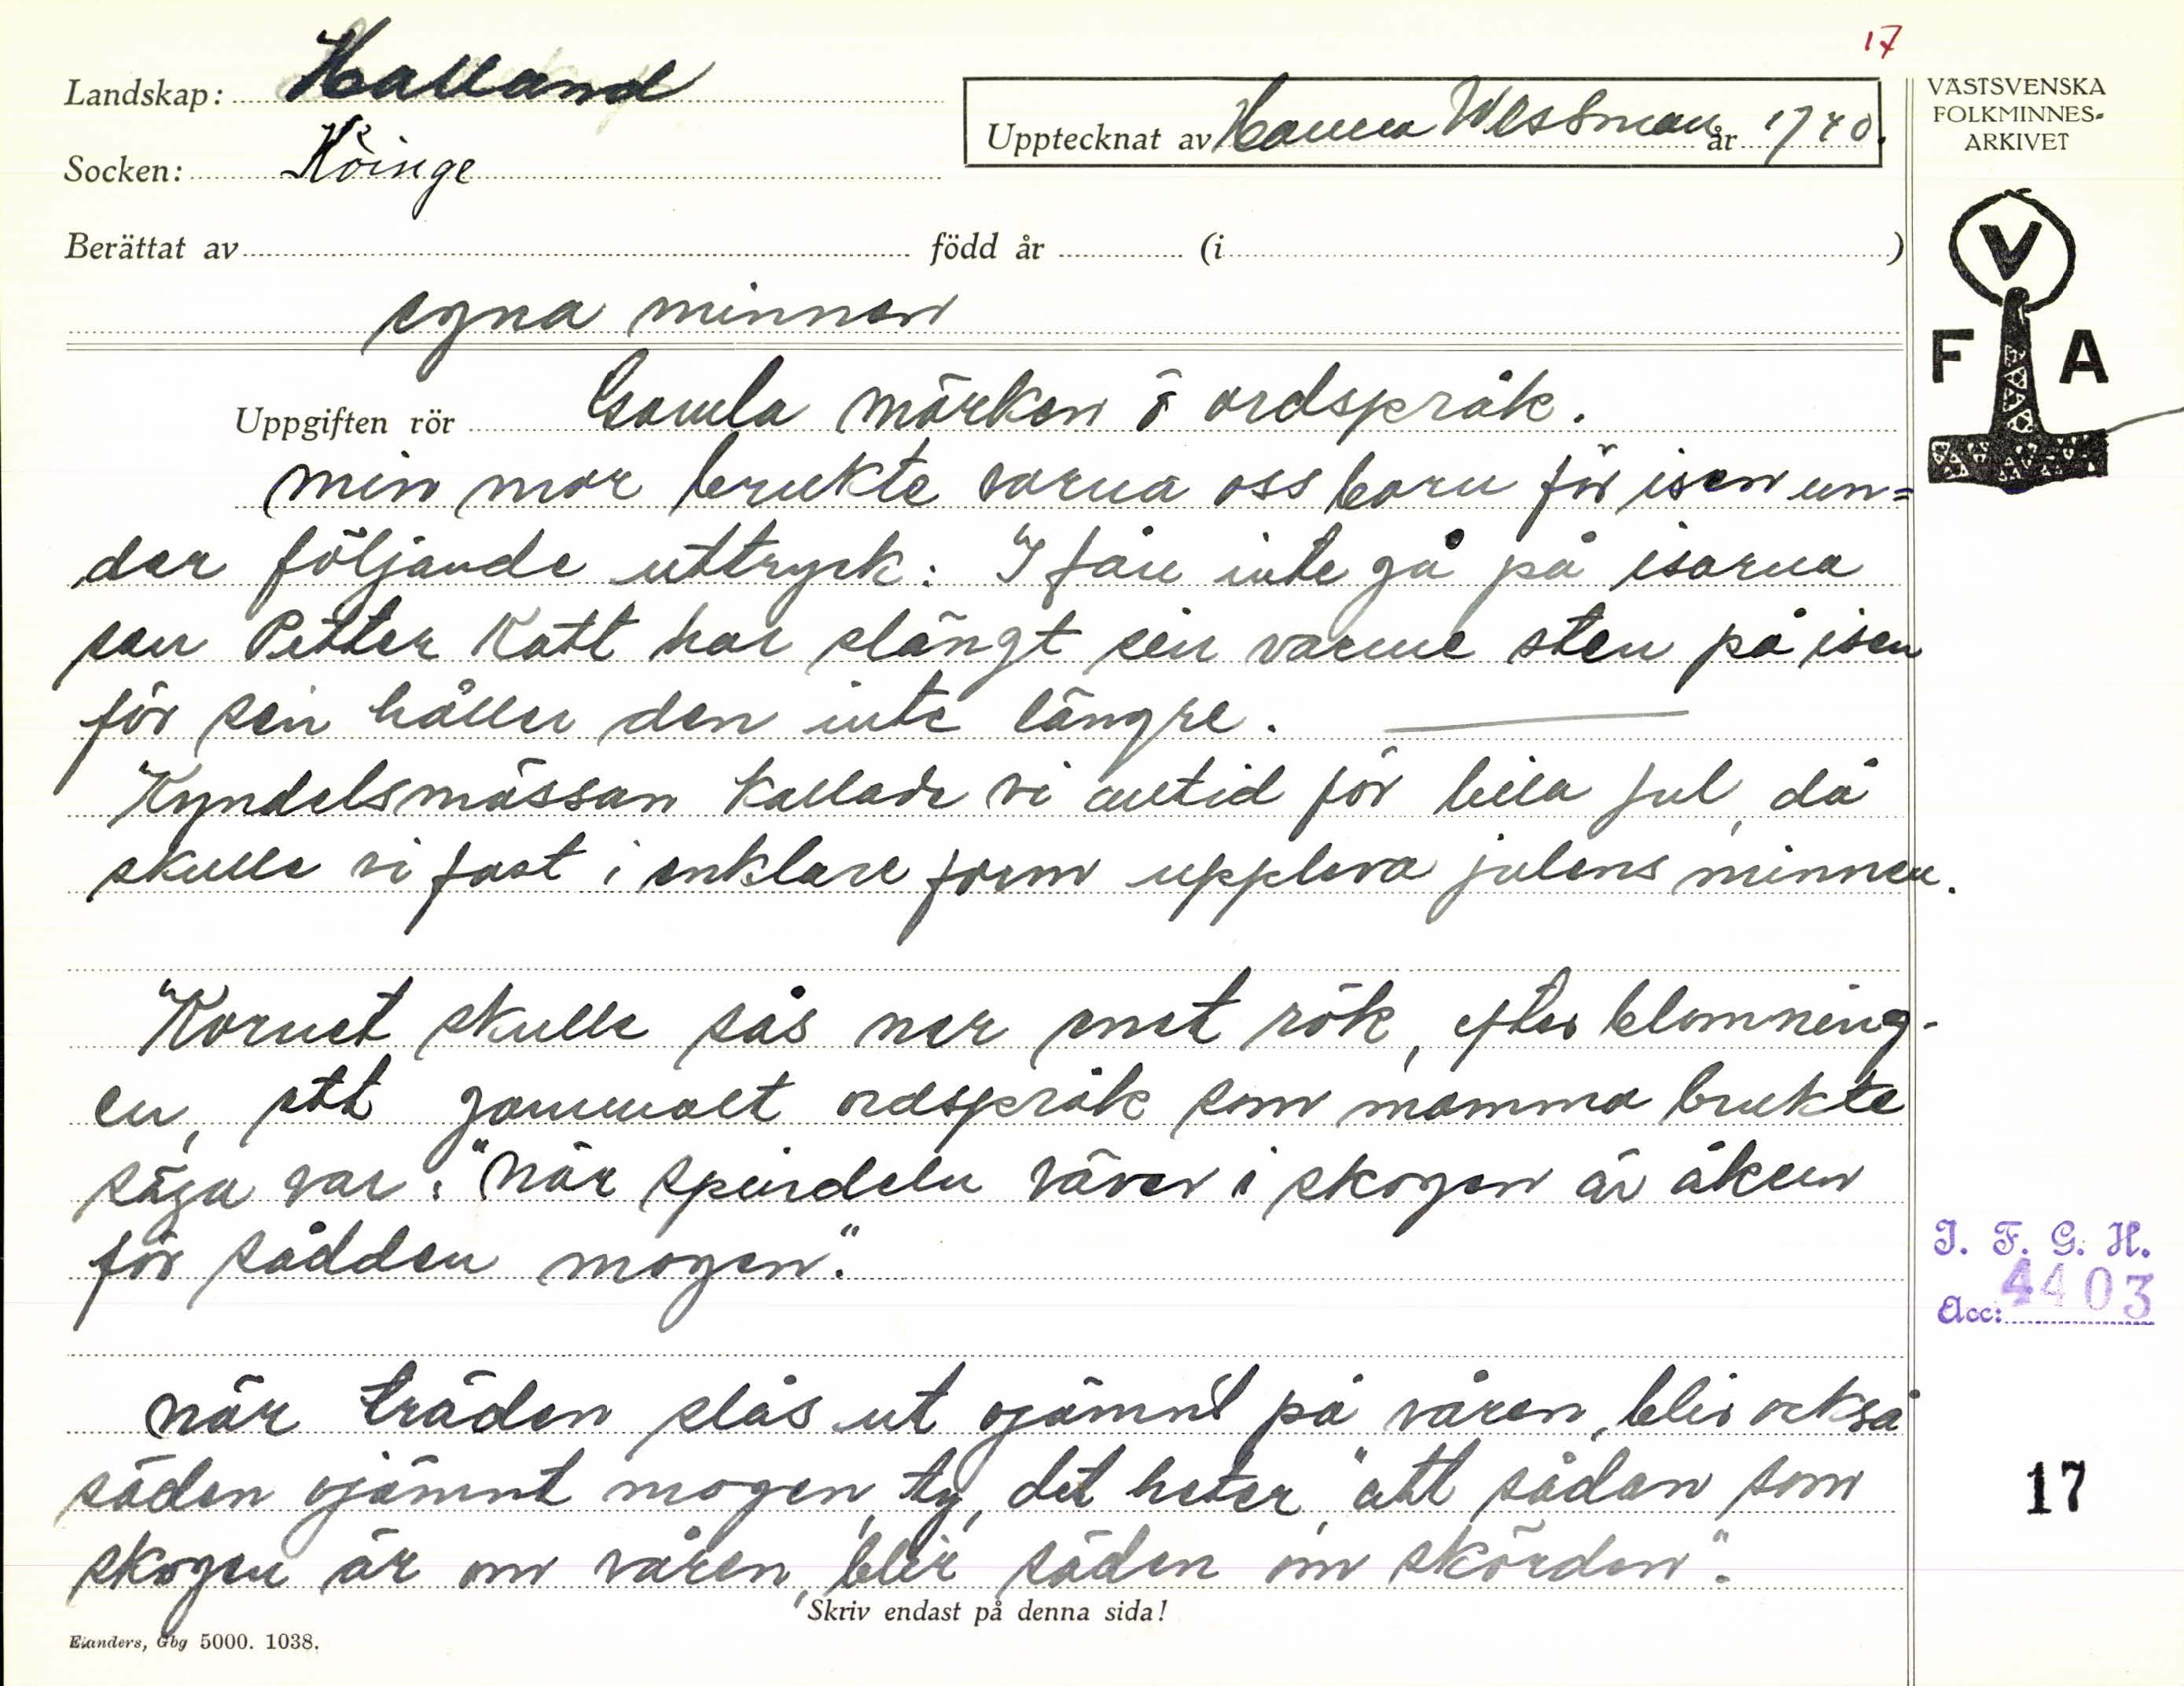 17
Landskap: Halland
Upptecknat av Hanna Wessman år 1940.
Socken: Köinge
Berättat av född år (i )
egna minnen
Uppgiften rör Gamla märken o ordspråk.
min mor brukte varna oss barn för isen un=
der följande uttryck: "I fån inte gå på isarna
sen Petter Katt har slängt sin varme sten på isen
för sen håller den inte längre.
Kyndelsmässan kallade vi alltid för lilla jul, då
skulle vi fast i enklare form uppleva julens minnen.
Kornet skulle sås ner enet rök, efter blomning-
en, ett gammalt ordspråk som mamma brukte
säga var: "När spindeln väver i skogen är åkern
för sådden mogen."
när träden slås ut ojämnt på våren, blir också
säden ojämnt mogen, ty, det heter, "att sådan som
skogen är om våren, blir säden om skörden".
Skriv endast på denna sida!
Elanders, Gbg 5000. 1038.
VÄSTSVENSKA
FOLKMINNES-
ARKIVET
V
F A
I. F. G. H.
Acc: 4403
17